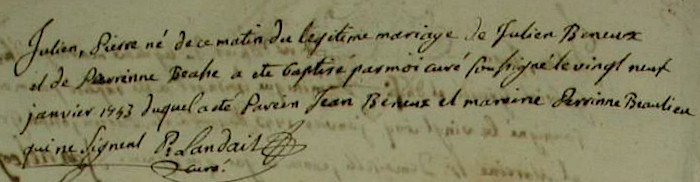 Julien, Pierre né de ce matin du legitime mariage de Julien Beneux
et de Perrinne Beahe a ete baptisé par moi curé soussigné le vingt neuf
janvier 1743 duquel a été Parein Jean Beneux et mareine Perrinne Beaulieu
qui ne signent P. Landait
curé.